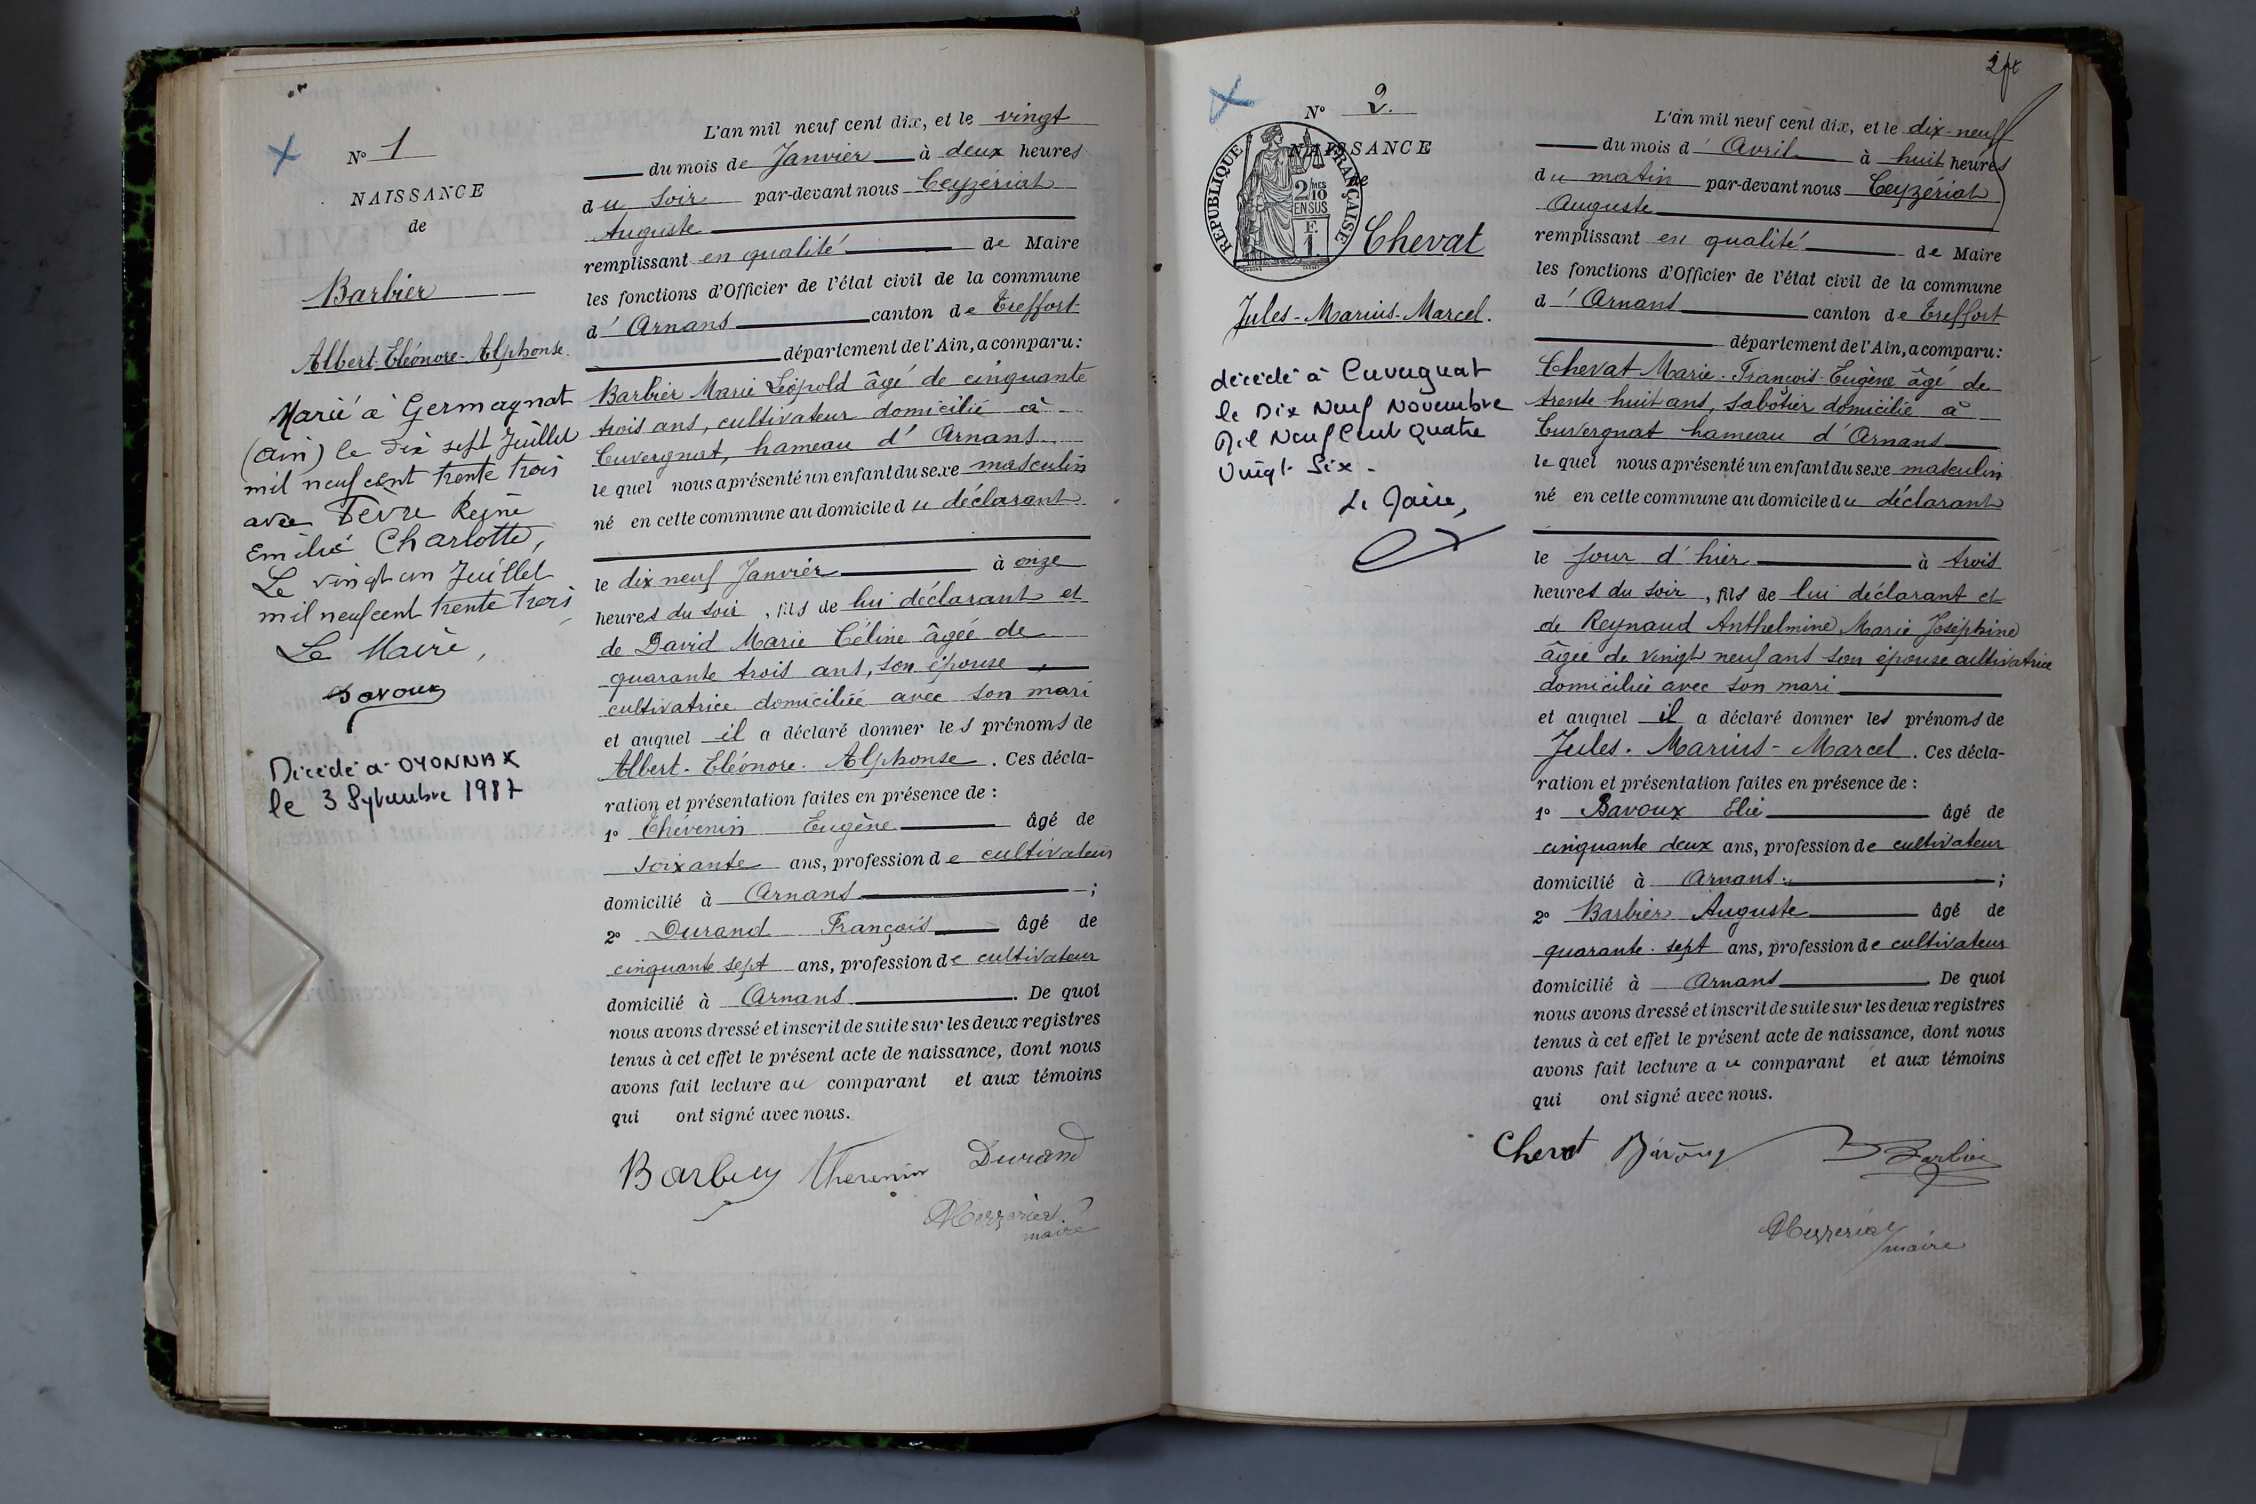 N° 1
NAISSANCE
de
Barbier
Albert-Eléonore-Alphonse.
Marié à Germagnat
(Ain) le dix sept Juillet
mil neuf cent trente trois
avec Fèvre Reine
Emilie Charlotte,
Le vingt un Juillet
mil neuf cent trente trois
Le Maire,
Savoux
Décédé à OYONNAX
le 3 Septembre 1987
L'an mil neuf cent dix, et le vingt
du mois de Janvier à deux heures
du soir par-devant nous Ceyzériat
Auguste
remplissant en qualité de Maire
les fonctions d'Officier de l'état civil de la commune
d'Arnans canton de Treffort
département de l'Ain, a comparu:
Barbier Marie Léopold âgé de cinquante
trois ans, cultivateur domicilié à
Cuvergnat, hameau d'Arnans
lequel nous a présenté un enfant du sexe masculin
né en cette commune au domicile du déclarant
le dix neuf Janvier à onze
heures du soir, fils de lui déclarant et
de David Marie Céline âgée de
quarante trois ans, son épouse
cultivatrice domiciliée avec son mari
et auquel il a déclaré donner les prénoms de
Albert-Eléonore-Alphonse. Ces décla-
ration et présentation faites en présence de:
1° Thévenin Eugène âgé de
soixante ans, profession de cultivateur
domicilié à Arnans;
2° Durand François âgé de
cinquante sept ans, profession de cultivateur
domicilié à Arnans. De quoi
nous avons dressé et inscrit de suite sur les deux registres
tenus à cet effet le présent acte de naissance, dont nous
avons fait lecture au comparant et aux témoins
qui ont signé avec nous.
Barbier Thevenin Durand
Ceyzériat
maire
2
N° 2.
NAISSANCE
de
RÉPUBLIQUE FRANÇAISE
2/10 mes
EN SUS
F.
1.
Chevat
Jules-Marius-Marcel.
décédé à Cuvergnat
le Dix Neuf Novembre
Mil Neuf Cent Quatre
Vingt-Six-
Le Maire,
L'an mil neuf cent dix, et le dix-neuf
du mois d'Avril à huit heures
du matin par-devant nous Ceyzériat
Auguste
remplissant en qualité de Maire
les fonctions d'Officier de l'état civil de la commune
d'Arnans canton de Treffort
département de l'Ain, a comparu:
Chevat Marie-François-Eugène âgé de
trente huit ans, sabotier domicilié à
Cuvergnat hameau d'Arnans
lequel nous a présenté un enfant du sexe masculin
né en cette commune au domicile du déclarant
le jour d'hier à trois
heures du soir, fils de lui déclarant et
de Reynaud Anthelmine Marie Joséphine
âgée de vingt neuf ans son épouse cultivatrice
domiciliée avec son mari
et auquel il a déclaré donner les prénoms de
Jules-Marius-Marcel. Ces décla-
ration et présentation faites en présence de:
1° Savoux Elie âgé de
cinquante deux ans, profession de cultivateur
domicilié à Arnans;
2° Barbier Auguste âgé de
quarante-sept ans, profession de cultivateur
domicilié à Arnans. De quoi
nous avons dressé et inscrit de suite sur les deux registres
tenus à cet effet le présent acte de naissance, dont nous
avons fait lecture au comparant et aux témoins
qui ont signé avec nous.
Chevat Savoux Barbier
Ceyzériat
maire